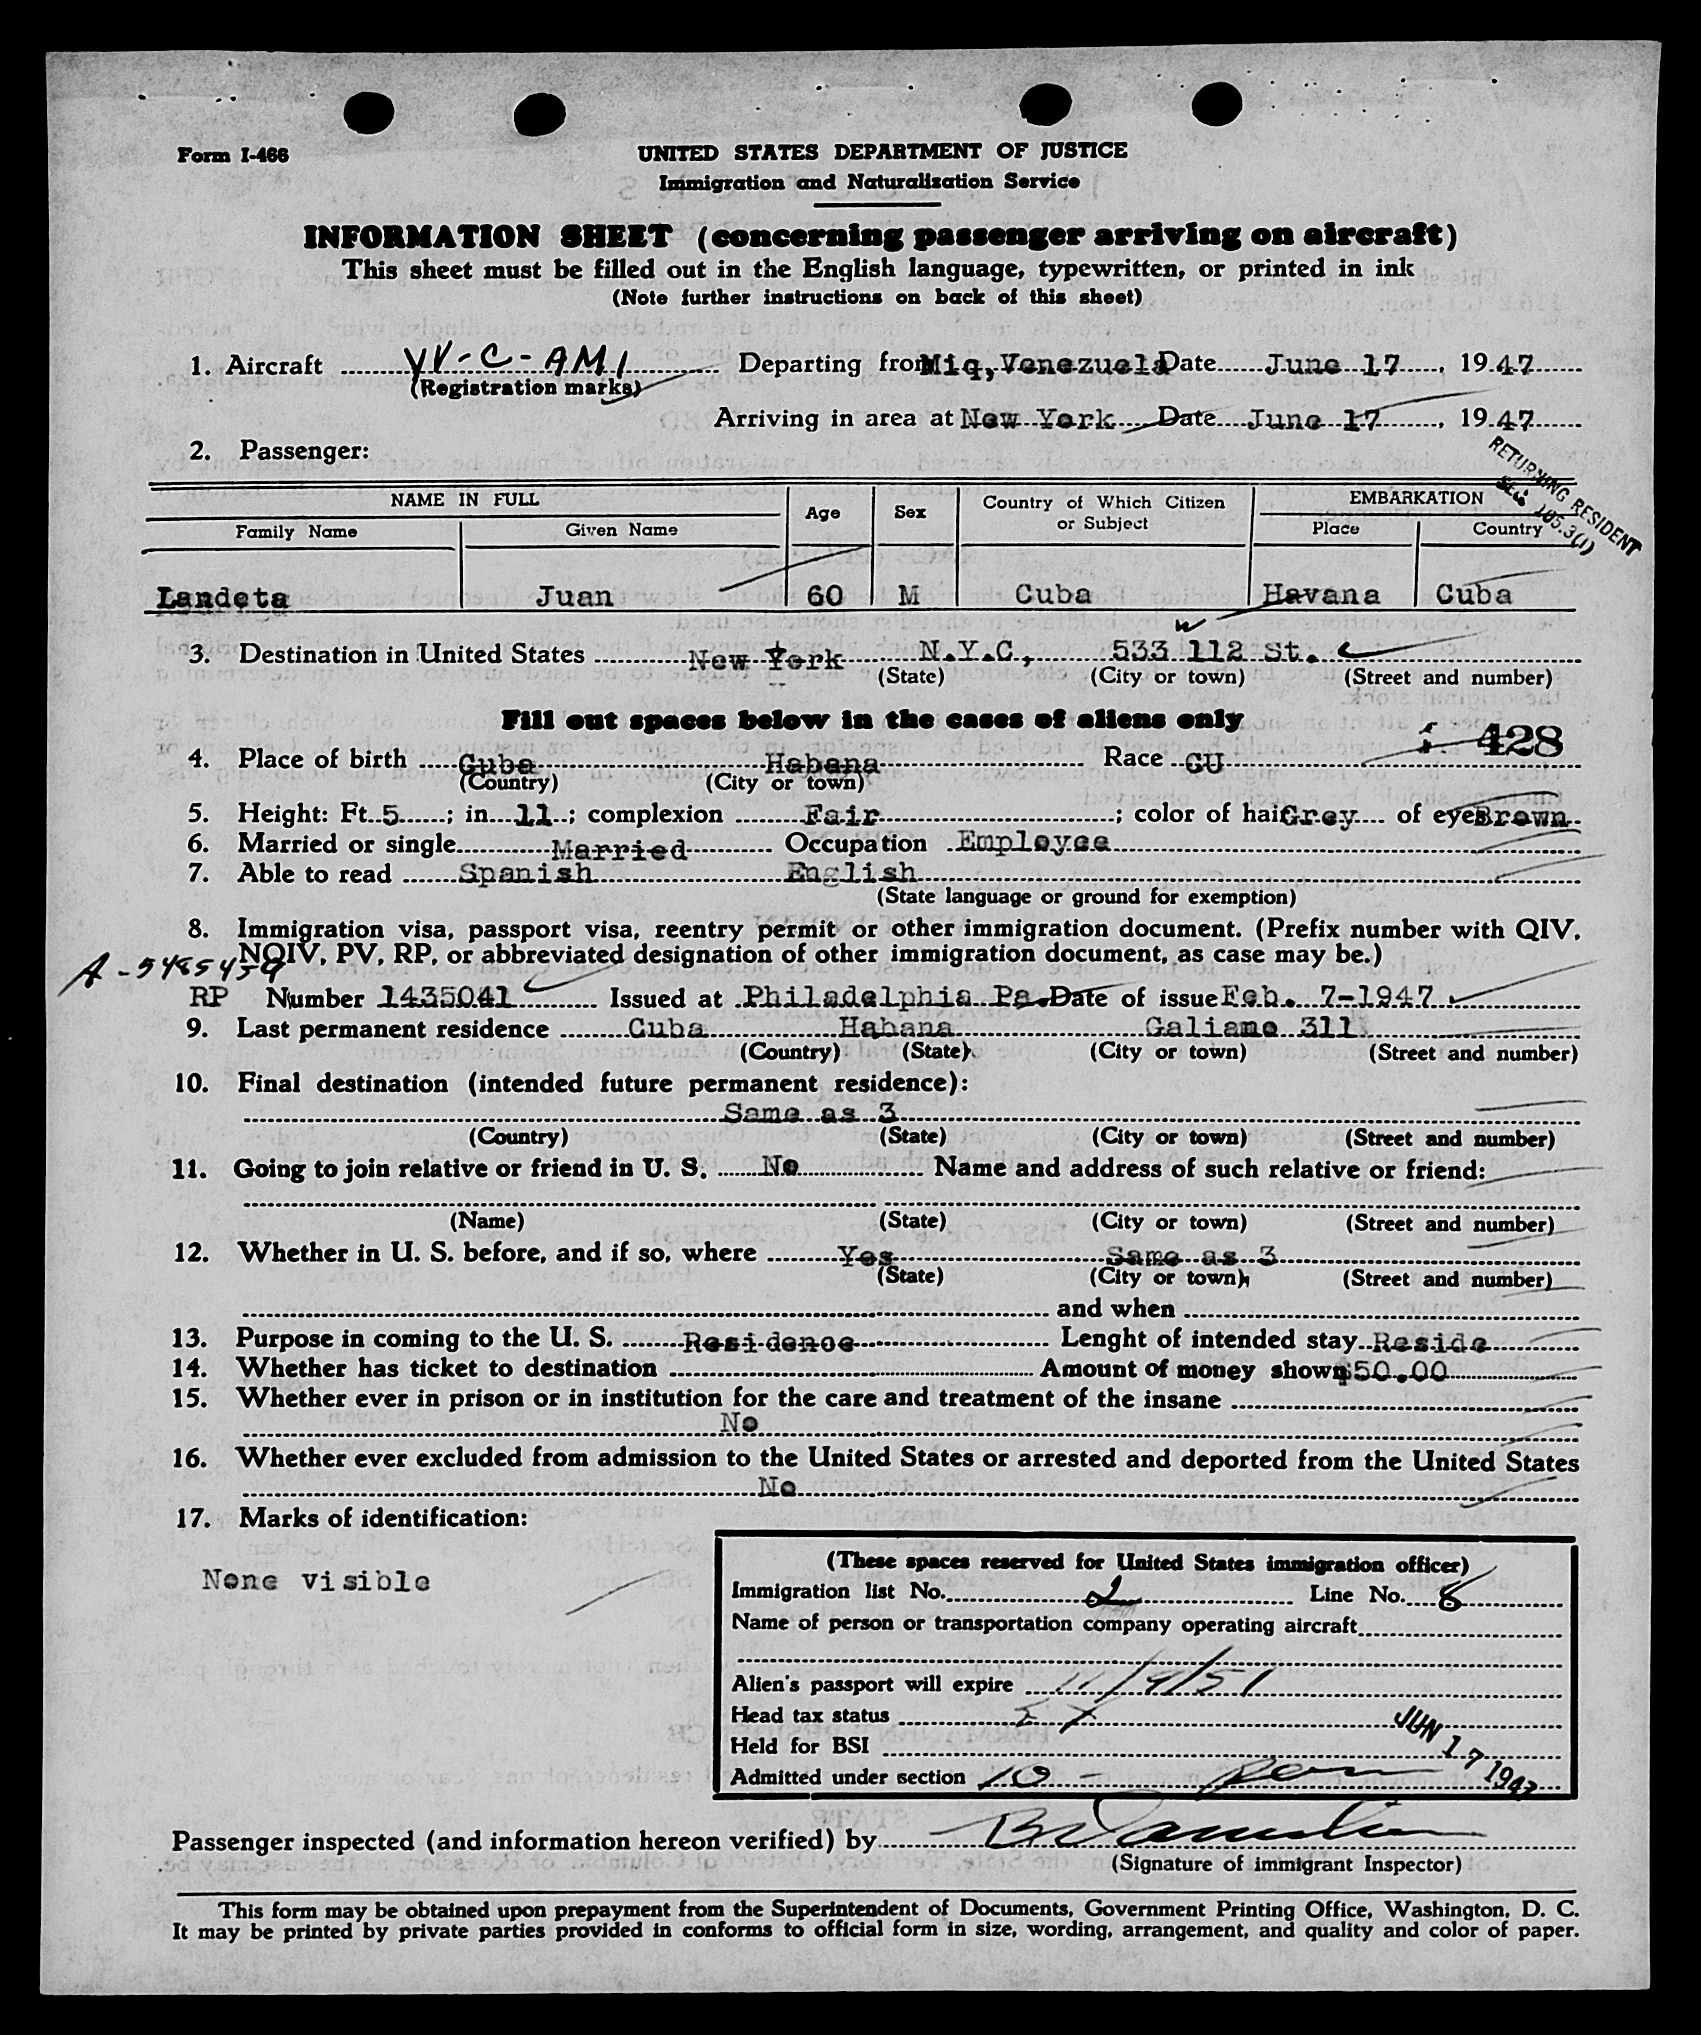 Form I-466
UNITED STATES DEPARTMENT OF JUSTICE
Immigration and Naturalization Service
INFORMATION SHEET (concerning passenger arriving on aircraft)
This sheet must be filled out in the English language, typewritten, or printed in ink
(Note further instructions on back of this sheet)
1. Aircraft YV-C-AMI Departing from Miq, Venezuela Date June 17, 1947
(Registration marks)
Arriving in area at New York Date June 17, 1947
2. Passenger:
RETURNING RESIDENT
Sec 105.3(1)
NAME IN FULL Age Sex Country of Which Citizen or Subject EMBARKATION
Family Name Given Name Place Country
Landeta Juan 60 M Cuba Havana Cuba
3. Destination in United States New York N.Y.C, 533 W 112 St.
(State) (City or town) (Street and number)
Fill out spaces below in the cases of aliens only
428
4. Place of birth Cuba Habana Race CU
(Country) (City or town)
5. Height: Ft. 5; in. 11; complexion Fair; color of hair Grey of eyes Brown
6. Married or single Married Occupation Employee
7. Able to read Spanish English
(State language or ground for exemption)
8. Immigration visa, passport visa, reentry permit or other immigration document. (Prefix number with QIV,
NQIV, PV, RP, or abbreviated designation of other immigration document, as case may be.)
A-5485459
RP Number 1435041 Issued at Philadelphia Pa. Date of issue Feb. 7-1947
9. Last permanent residence Cuba Habana Galiano 311
(Country) (State) (City or town) (Street and number)
10. Final destination (intended future permanent residence):
Same as 3
(Country) (State) (City or town) (Street and number)
11. Going to join relative or friend in U. S. No Name and address of such relative or friend:
(Name) (State) (City or town) (Street and number)
12. Whether in U. S. before, and if so, where Yes Same as 3
(State) (City or town) (Street and number)
and when
13. Purpose in coming to the U. S. Residence Lenght of intended stay Reside
14. Whether has ticket to destination Amount of money shown $50.00
15. Whether ever in prison or in institution for the care and treatment of the insane
No
16. Whether ever excluded from admission to the United States or arrested and deported from the United States
No
17. Marks of identification:
None visible
(These spaces reserved for United States immigration officer)
Immigration list No. 2 Line No. 8
Name of person or transportation company operating aircraft
Alien's passport will expire 11/9/51
Head tax status EX
Held for BSI
JUN 17 1947
Admitted under section 10 -
Passenger inspected (and information hereon verified) by
(Signature of immigrant Inspector)
This form may be obtained upon prepayment from the Superintendent of Documents, Government Printing Office, Washington, D. C.
It may be printed by private parties provided in conforms to official form in size, wording, arrangement, and quality and color of paper.